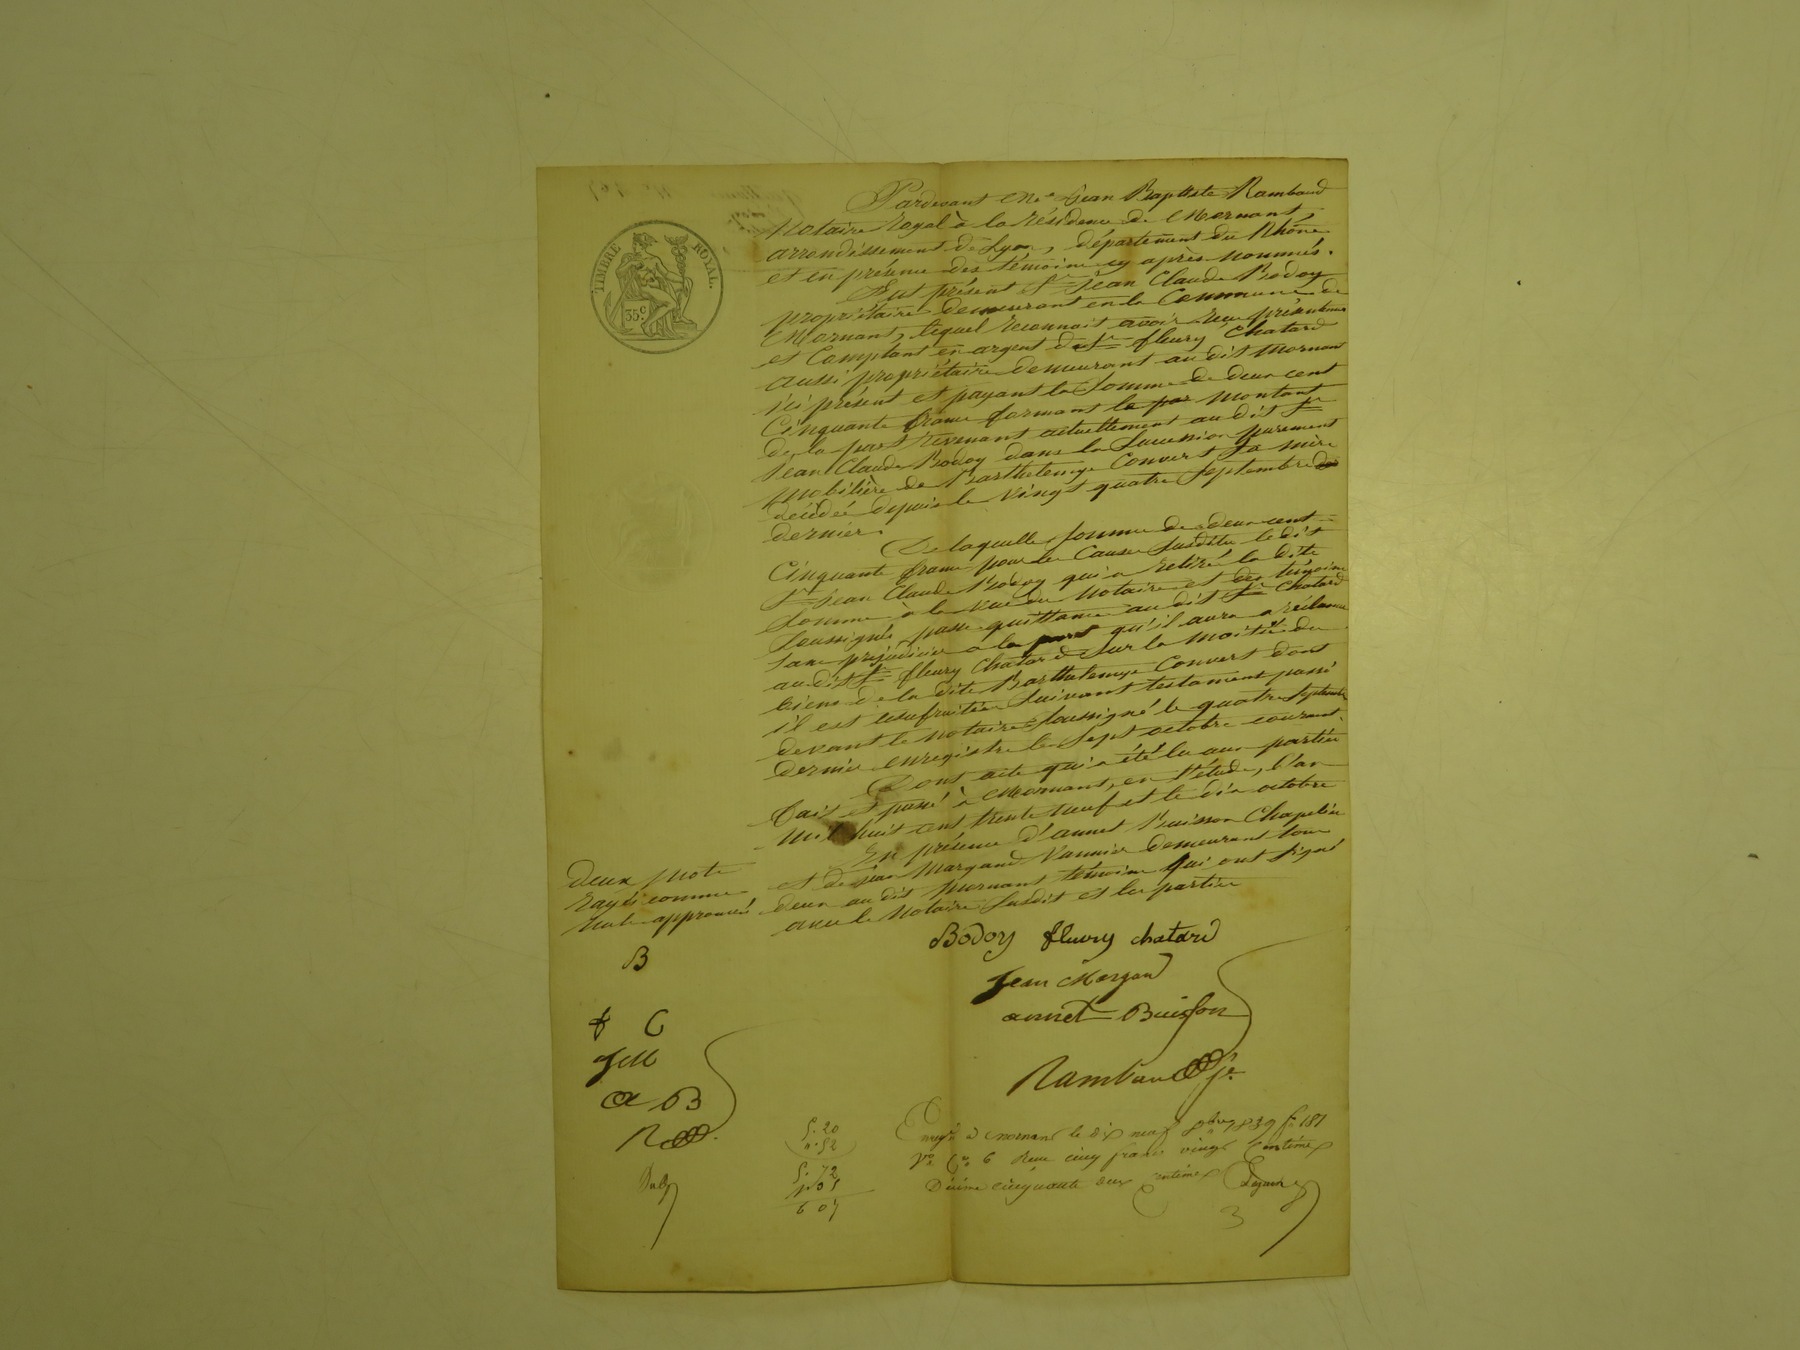 TIMBRE ROYAL.
35c
Pardevant Me Jean Baptiste Rambaud
Notaire Royal à la résidence de Mornant
arrondissement de Lyon, département du Rhône
et en présence des témoins cy après nommés.
Fut présent Sr Jean Claude Bodoy
propriétaire demeurant en la Commune de
Mornant, lequel reconnait avoir reçu présentement
et Comptant en argent de Sr fleury Chatard
aussi propriétaire demeurant au dit Mornant
ici présent et payant la Somme de deux cent
Cinquante francs formant le par montant
de la part revenant actuellement au dit Sr
Jean Claude Bodoy dans la Succession purement
mobilière de Barthelemye Convert Sa mère
décédée depuis le vingt quatre Septembre der
dernier.
De laquelle Somme de deux cent
Cinquante francs pour les Causes Susdites le dit
Sr Jean Claude Bodoy qui a retiré la dite
Somme à la vue du Notaire et des témoins
Soussignés passe quittance au dit Sr Chatard
Sans préjudicier a la part qu'il aura a réclamer
au dit Sr fleury Chatard Sur la moitié des
biens de la dite Barthelemye Convert dont
il est usufruitier Suivant testament passé
devant le notaire Soussigné le quatre Septembre
dernier enregistré le Sept octobre courant.
Dont acte qui a été lu aux parties
Fait et passé à Mornant, en l'étude, l'an
Mil huit cent trente neuf et le dix octobre
En présence d'annet Buisson Chapelier
et de Jean Margand Vannier demeurant tous
deux au dit Mornant témoins qui ont Signé
avec le Notaire Susdit et les parties
Deux mots
rayés comme
nuls approuvés
Bodoy fleury chatard
B
Jean Margand
f C
annet Buisson
J M
Rambaud
a B
R
5.20
".52
5.72
6 07
Enregé à Mornant le dix neuf 8bre 1839 fo 181
Vo Ce 6 Reçu cinq francs vingt Centimes
Décime cinquante deux centimes
3